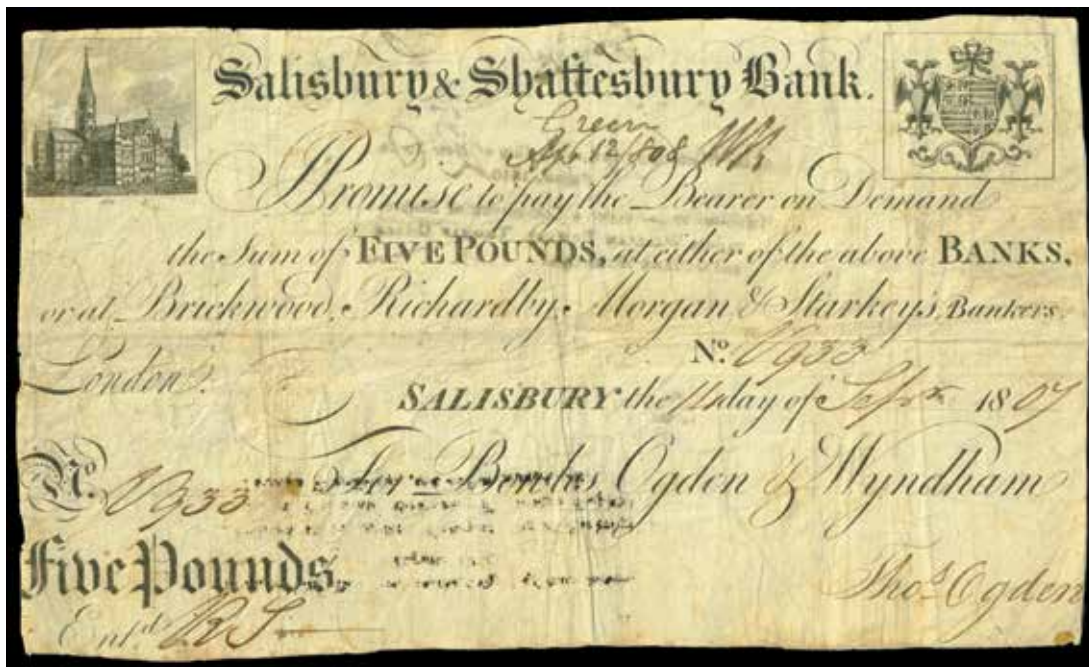 Salisbury & Shaftesbury Bank.
Green
Apr 12/808
I Promise to pay the Bearer on Demand
the Sum of FIVE POUNDS, at either of the above BANKS,
or at Brickwood, Richardby, Morgan & Starkey's, Bankers,
London.
No. V933
SALISBURY the 14 day of Septr 1807
No. V933 For Bowles Ogden & Wyndham
Five Pounds.
Thos. Ogden
Entd.